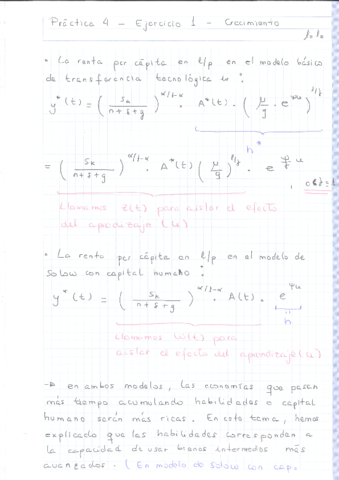 Práctica 4 - Ejercicio 1 - Crecimiento
• La renta per cápita en l/p en el modelo básico
de transferencia tecnológica is:
y*(t) = (sk / n+δ+g)^α/1-α · A*(t) · (μ/g · e^ψu)^1/γ
h*
= (sk / n+δ+g)^α/1-α · A*(t) (μ/g)^1/γ · e^ψ/γ u, 0<γ≤1
Llamamos z(t) para aislar el efecto
del aprendizaje (u)
• La renta per cápita en l/p en el modelo de
Solow con capital humano:
y*(t) = (sk / n+δ+g)^α/1-α · A(t) · e^ψu
h
Llamamos w(t) para
aislar el efecto del aprendizaje (u)
→ en ambos modelos, las economías que pasan
más tiempo acumulando habilidades o capital
humano serán más ricas. En este tema, hemos
explicado que las habilidades corresponden a
la capacidad de usar bienes intermedios más
avanzados. (En modelo de Solow con cap.